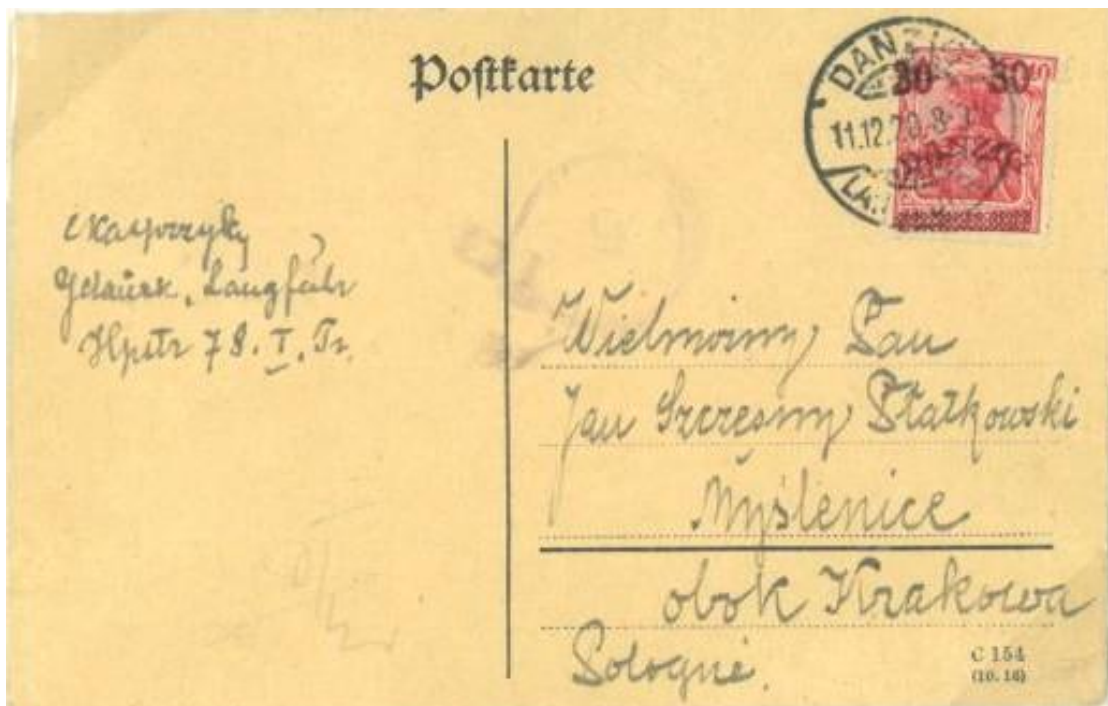 Postkarte
DANZIG
11.12.20. 8-
30 30
Gdańsk, Langfuhr
Hpstr 78. I. Tr.
Wielmożny Pan
Jan Szczęsny Płatkowski
Myślenice
obok Krakowa
Pologne.
C 154
(10. 16)